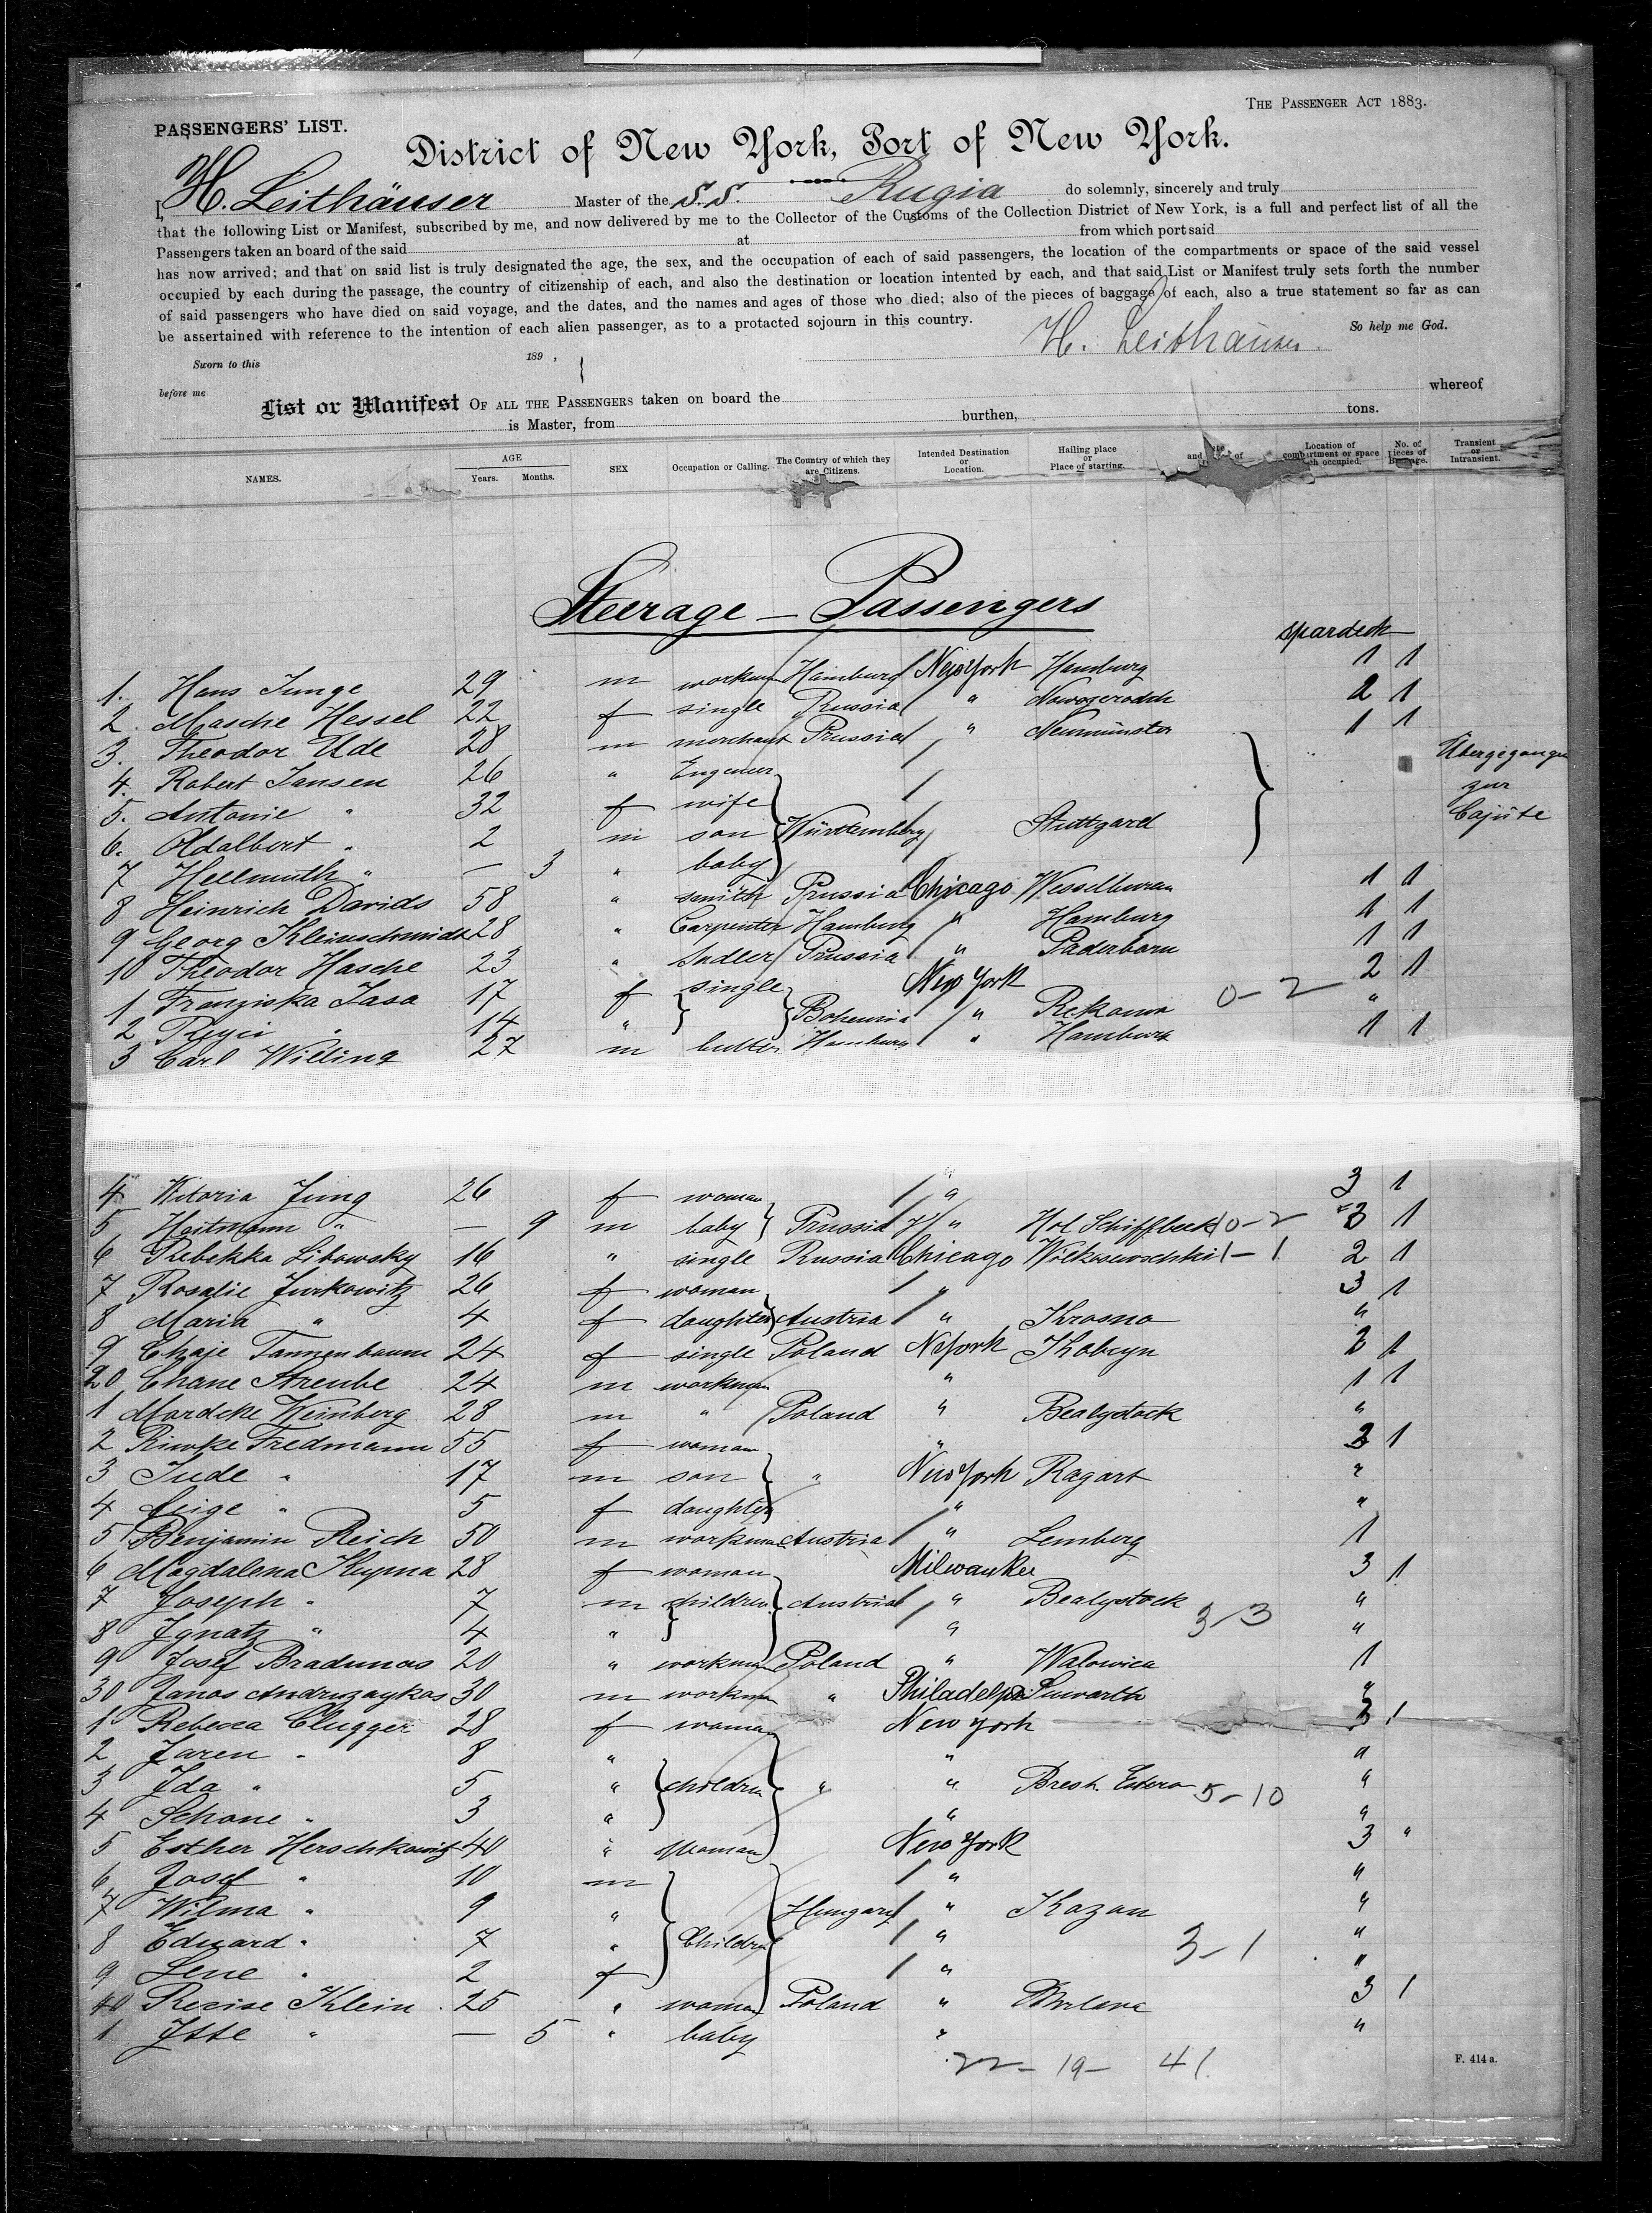 THE PASSENGER ACT 1883.
PASSENGERS' LIST.
District of New York, Port of New York.
I, H. Leithäuser Master of the S.S. Rugia do solemnly, sincerely and truly
that the following List or Manifest, subscribed by me, and now delivered by me to the Collector of the Customs of the Collection District of New York, is a full and perfect list of all the
Passengers taken an board of the said at from which port said
has now arrived; and that on said list is truly designated the age, the sex, and the occupation of each of said passengers, the location of the compartments or space of the said vessel
occupied by each during the passage, the country of citizenship of each, and also the destination or location intented by each, and that said List or Manifest truly sets forth the number
of said passengers who have died on said voyage, and the dates, and the names and ages of those who died; also of the pieces of baggage of each, also a true statement so far as can
be assertained with reference to the intention of each alien passenger, as to a protacted sojourn in this country.
H. Leithäuser So help me God.
Sworn to this 189 ,
before me
List or Manifest OF ALL THE PASSENGERS taken on board the whereof
is Master, from burthen, tons.
NAMES. AGE Years. Months. SEX Occupation or Calling. The Country of which they are Citizens. Intended Destination or Location. Hailing place or Place of starting. and of Location of compartment or space occupied. No. of Pieces of Transient or Intransient.
Steerage - Passengers
spardeck
1. Hans Junge 29 m workman Hamburg New York Hamburg 1 1
2. Masche Hessel 22 f single Russia " 2 1
3. Theodor Ude 28 m merchant Prussia " Neumünster 1 1
4. Robert Jansen 26 " Engeneer Übergegangen
5. Antonie " 32 f wife zur
6. Adalbert " 2 m son Württemberg Stuttgard Cajüte
7 Hellmuth " — 3 " baby
8 Heinrich Davids 58 " smith Prussia Chicago Wesselburen 1 1
9 Georg Kleinschmidt 28 " Carpenter Hamburg " Hamburg 1 1
10 Theodor Hasche 23 " Sadler Prussia " Paderborn 1 1
1 Franziska Jasa 17 f single New York 2 1
2 " 14 " Bohemia " Rekowa 0-2 "
3 Carl Willing 27 m Hamburg " Hamburg 1 1
4 Vitoria Jung 26 f woman " 3 1
5 Heitmann " — 9 m baby Prussia " Hol Schiffbeck 0-2 3 1
6 Rebekka Libowsky 16 " single Russia Chicago 1-1 2 1
7 Rosalie Jurkowitz 26 f woman " 3 1
8 Maria " 4 f daughter Austria " Krosno "
9 Chaje Tannenbaum 24 f single Poland N York Kobryn 2 1
20 Chane Streube 24 m workman " 1 1
1 Mordcke Weinberg 28 m " Poland " Bealystock "
2 Riwke Fredmann 55 f woman " 3 1
3 Jude " 17 m son " New York Ragart "
4 Feige " 5 f daughter " "
5 Benjamin Reich 50 m workman Austria " Lemberg 1
6 Magdalena Kupma 28 f woman Milwaukee 3 1
7 Joseph " 7 m children Austria " Bealystock "
8 Ignatz " 4 " " 3-3 "
9 Josef Bradunas 20 " workman Poland " Walowica 1
30 Janos Andruzaykos 30 m workman " Philadelph Suwarth "
1 Rebecca Clugger 28 f woman New York 3 1
2 Jaren " 8 " " "
3 Ida " 5 " children " " Brest. 5-10 "
4 Schane " 3 " " "
5 Esther Herschkowitz 40 " Woman New York 3 "
6 Josef " 10 m " "
7 Wilma " 9 " Hungary " Kazan "
8 Eduard " 7 " Children " 3-1 "
9 Lene " 2 f " "
40 Recise Klein 25 " woman Poland " 3 1
1 Jtte " — 5 " baby " "
22- 19- 41.
F. 414 a.